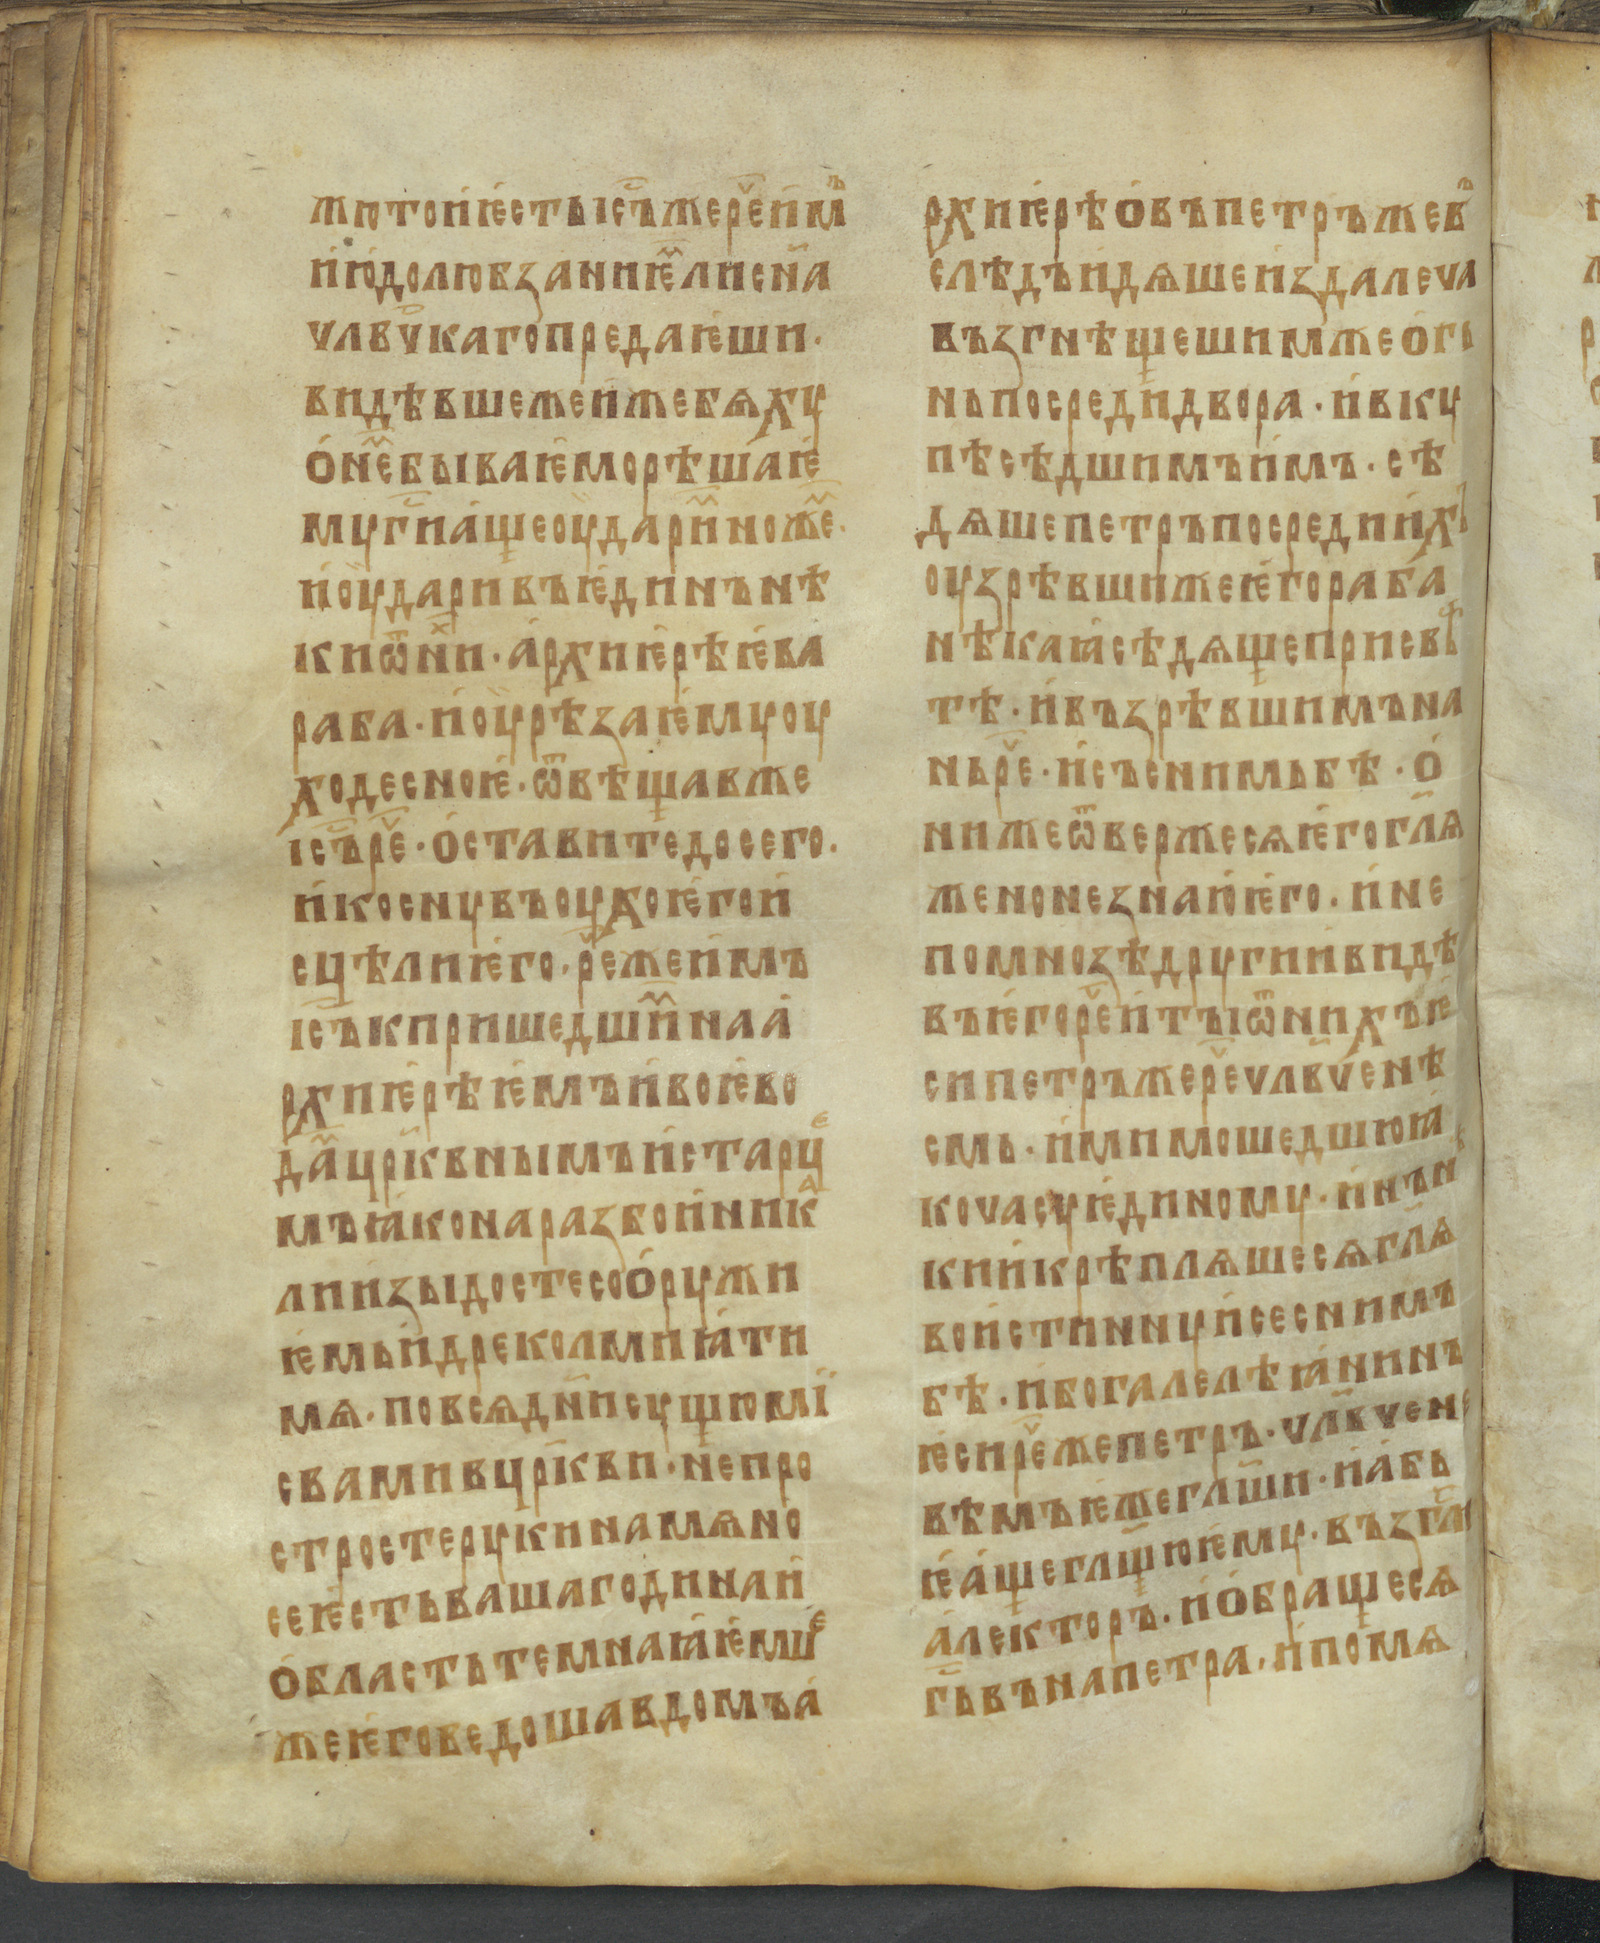 жютоиѥстьісъжереимъ
ииюдолюбзаниѥлиснā
члвчкагопредаѥши·
видѣвшежеижебѧху
онебываѥморѣшаѥ
мугиащеоударинноже·
иоударивъѥдинънѣ
киѿни·архиѥрѣѥва
раба·иоурѣзаѥмуоу
ходесноѥ·ѿвѣщавже
ісъре·оставитедосего·
икоснувъоухоѥгои
сцѣлиѥго·режеимъ
ісъкпришедшинаа
рхиѥрѣѥмъивоѥво
дацркв̄нымъистарце
мъꙗконаразбоиник
лиизыдостесооружи
ѥмьидреколмиꙗти
мѧ·повсѧдниисущюмі
свамивцркви·непро
стростерукинамѧно
сеѥстьвашагодинаи
областьтемнаꙗѥмше
жеѥговедошавдомъа
рхиѥрѣовъпетръжев
слѣдъидѧшеиздалеча
възгнѣщешимжеог
ньпосредидвора·ивку
пѣсѣдшимъимъ·сѣ
дѧшепетръпосредиихъ
оузрѣвшижеѥгораба
нѣкаꙗсѣдѧщеприсвѣ
тѣ·ивъзрѣвшимъна
ньре·исъснимьбѣ·о
нижеѿвержесѧѥгоглѧ
женонезнаюѥго·ине
помнозѣдругиивидѣ
въѥгореитыѿнихъѥ
сипетръжеречлвченѣ
смь·имимошедшюꙗ
кочасуѥдиному·инън
киикрѣплѧшесѧглѧ
воистиннуисеснимъ
бѣ·ибогалелѣꙗнинъ
ѥсирежепетръ·члвчене
вѣмъѥжеглши·иабь
ѥащеглшюѥму·възгл
алекторъ·иобращесѧ
гьвънапетра·ипомѧ